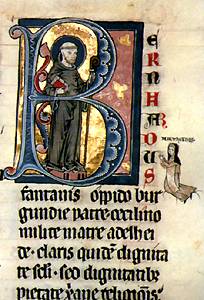 BERNHARDUS
fantanis opido bur
gundie patre cecilino
milite matre adelhei
de. claris quidē dignita
te scl̄i. sed dignitatib;
pietate xp̄iane religionis